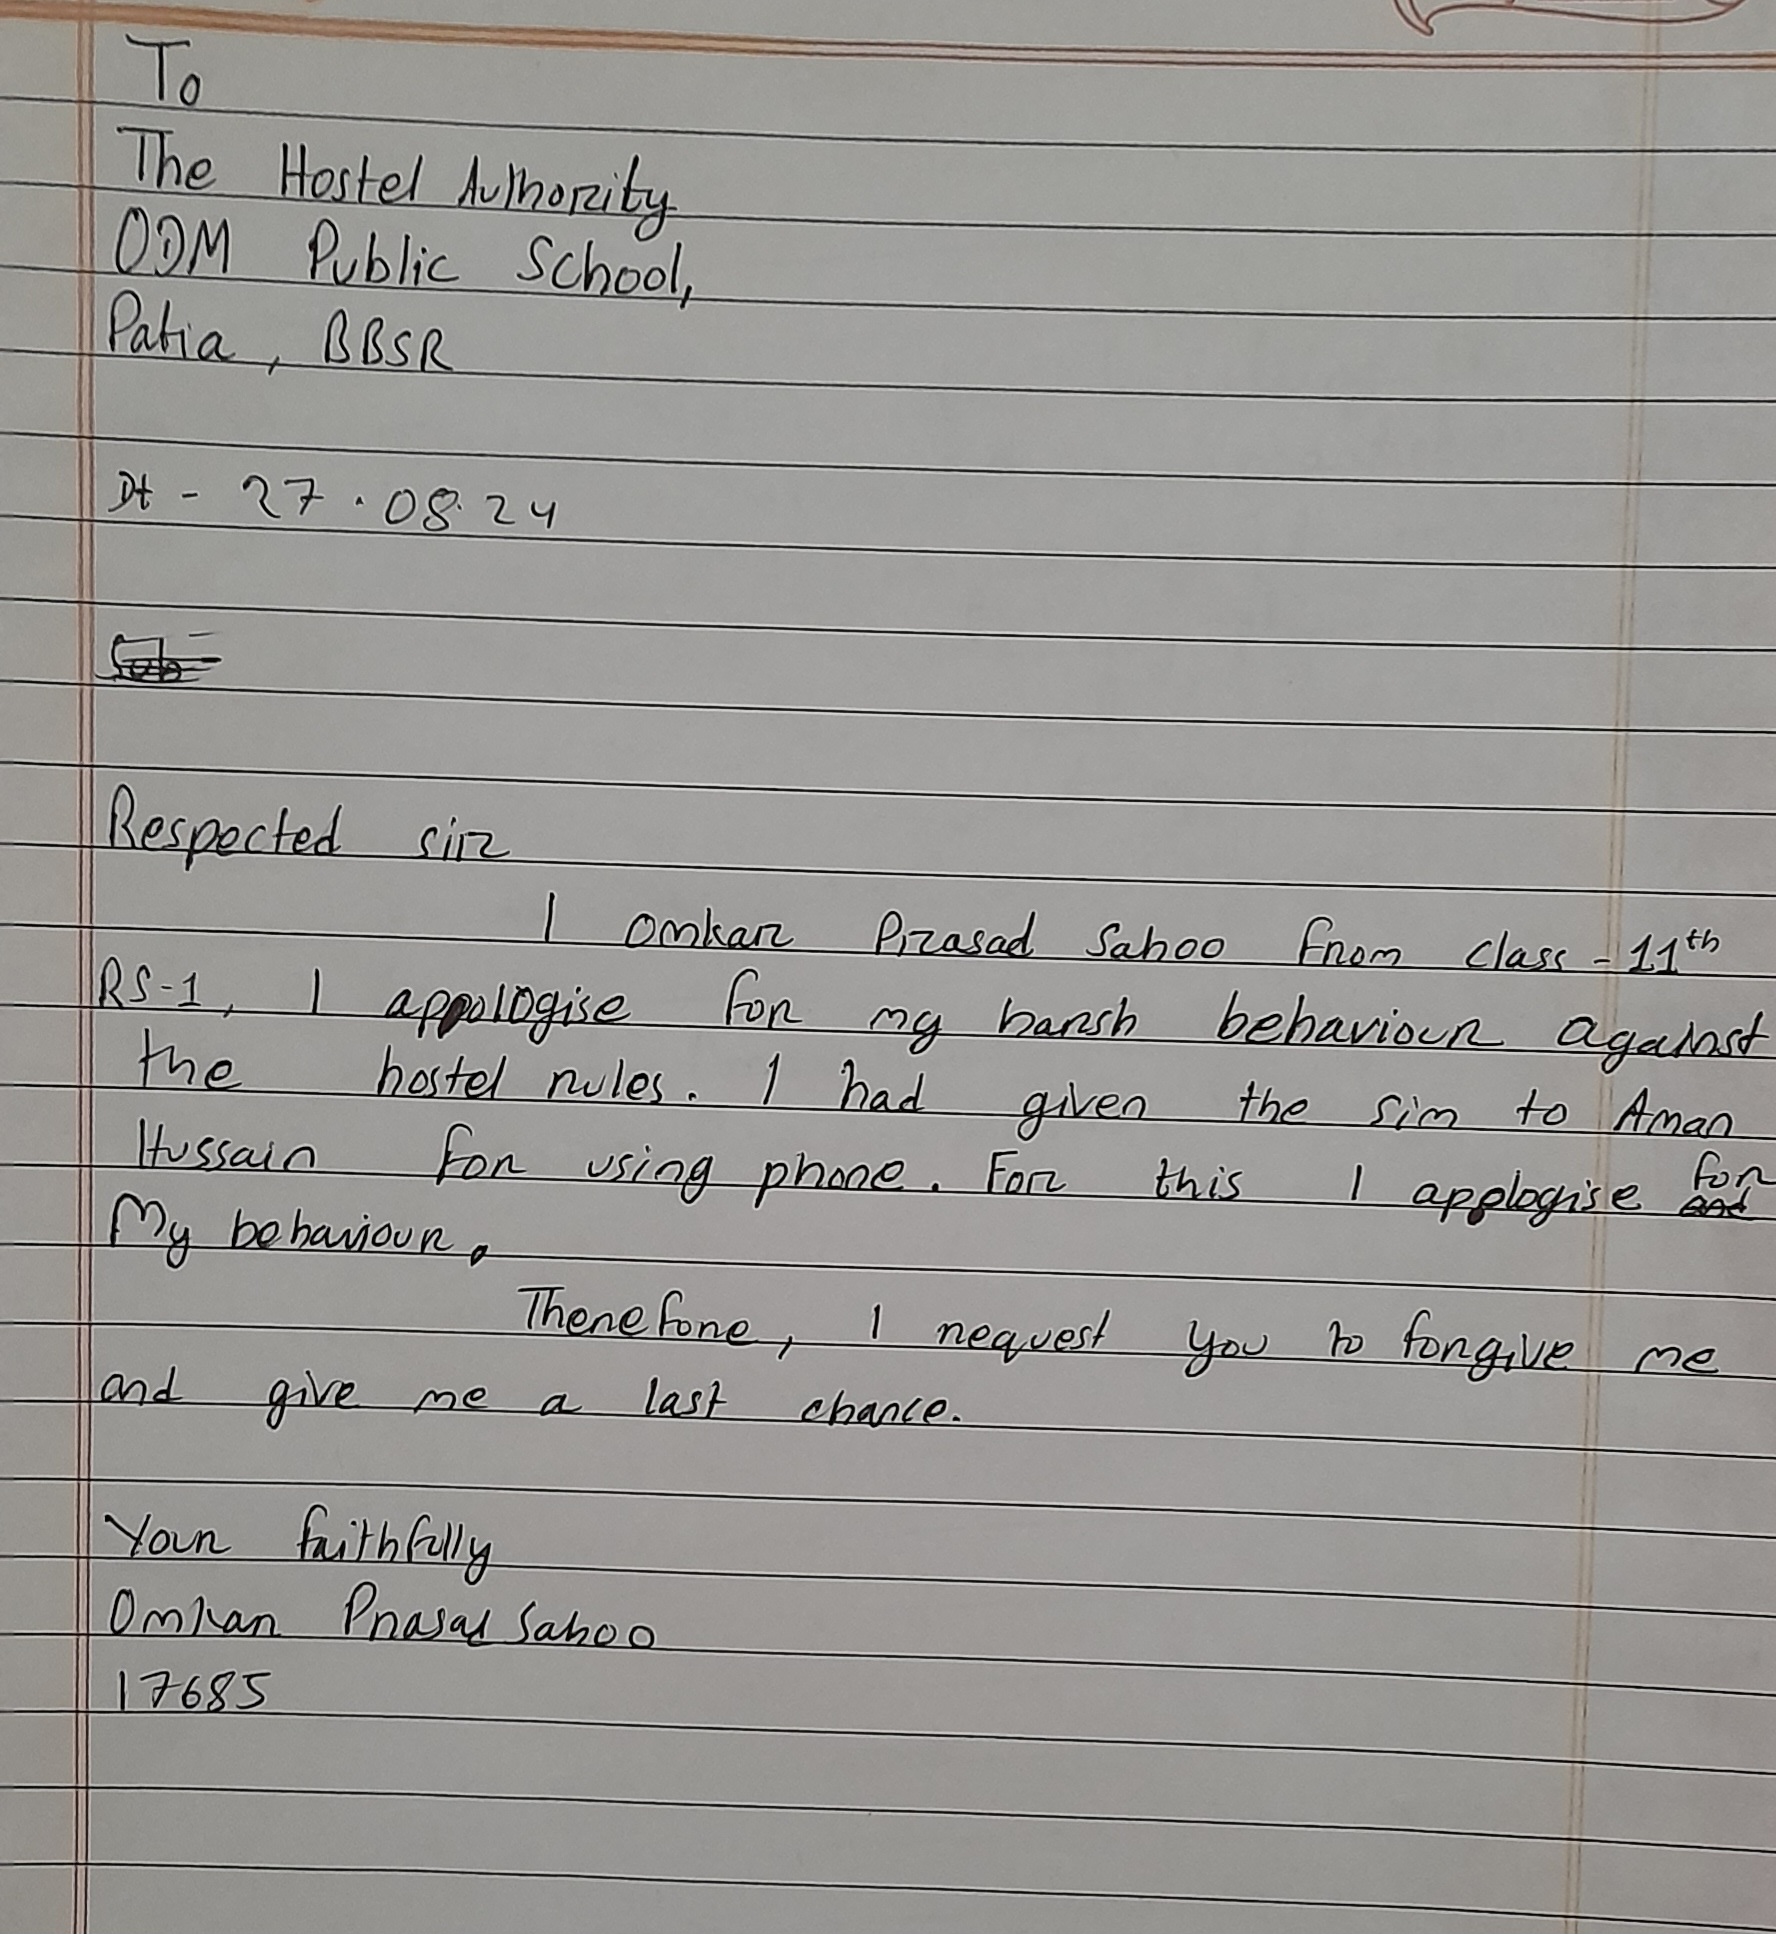 To
The Hostel Authority
ODM Public School,
Patia, BBSR
Dt - 27.08.24
Respected sir
I Omkar Prasad Sahoo from class - 11th
RS-1, I appologise for my harsh behaviour against
the hostel rules. I had given the sim to Aman
Hussain for using phone. For this I appologise for
My behaviour.
Therefore, I request you to forgive me
and give me a last chance.
Your faithfully
Omkar Prasad Sahoo
17685